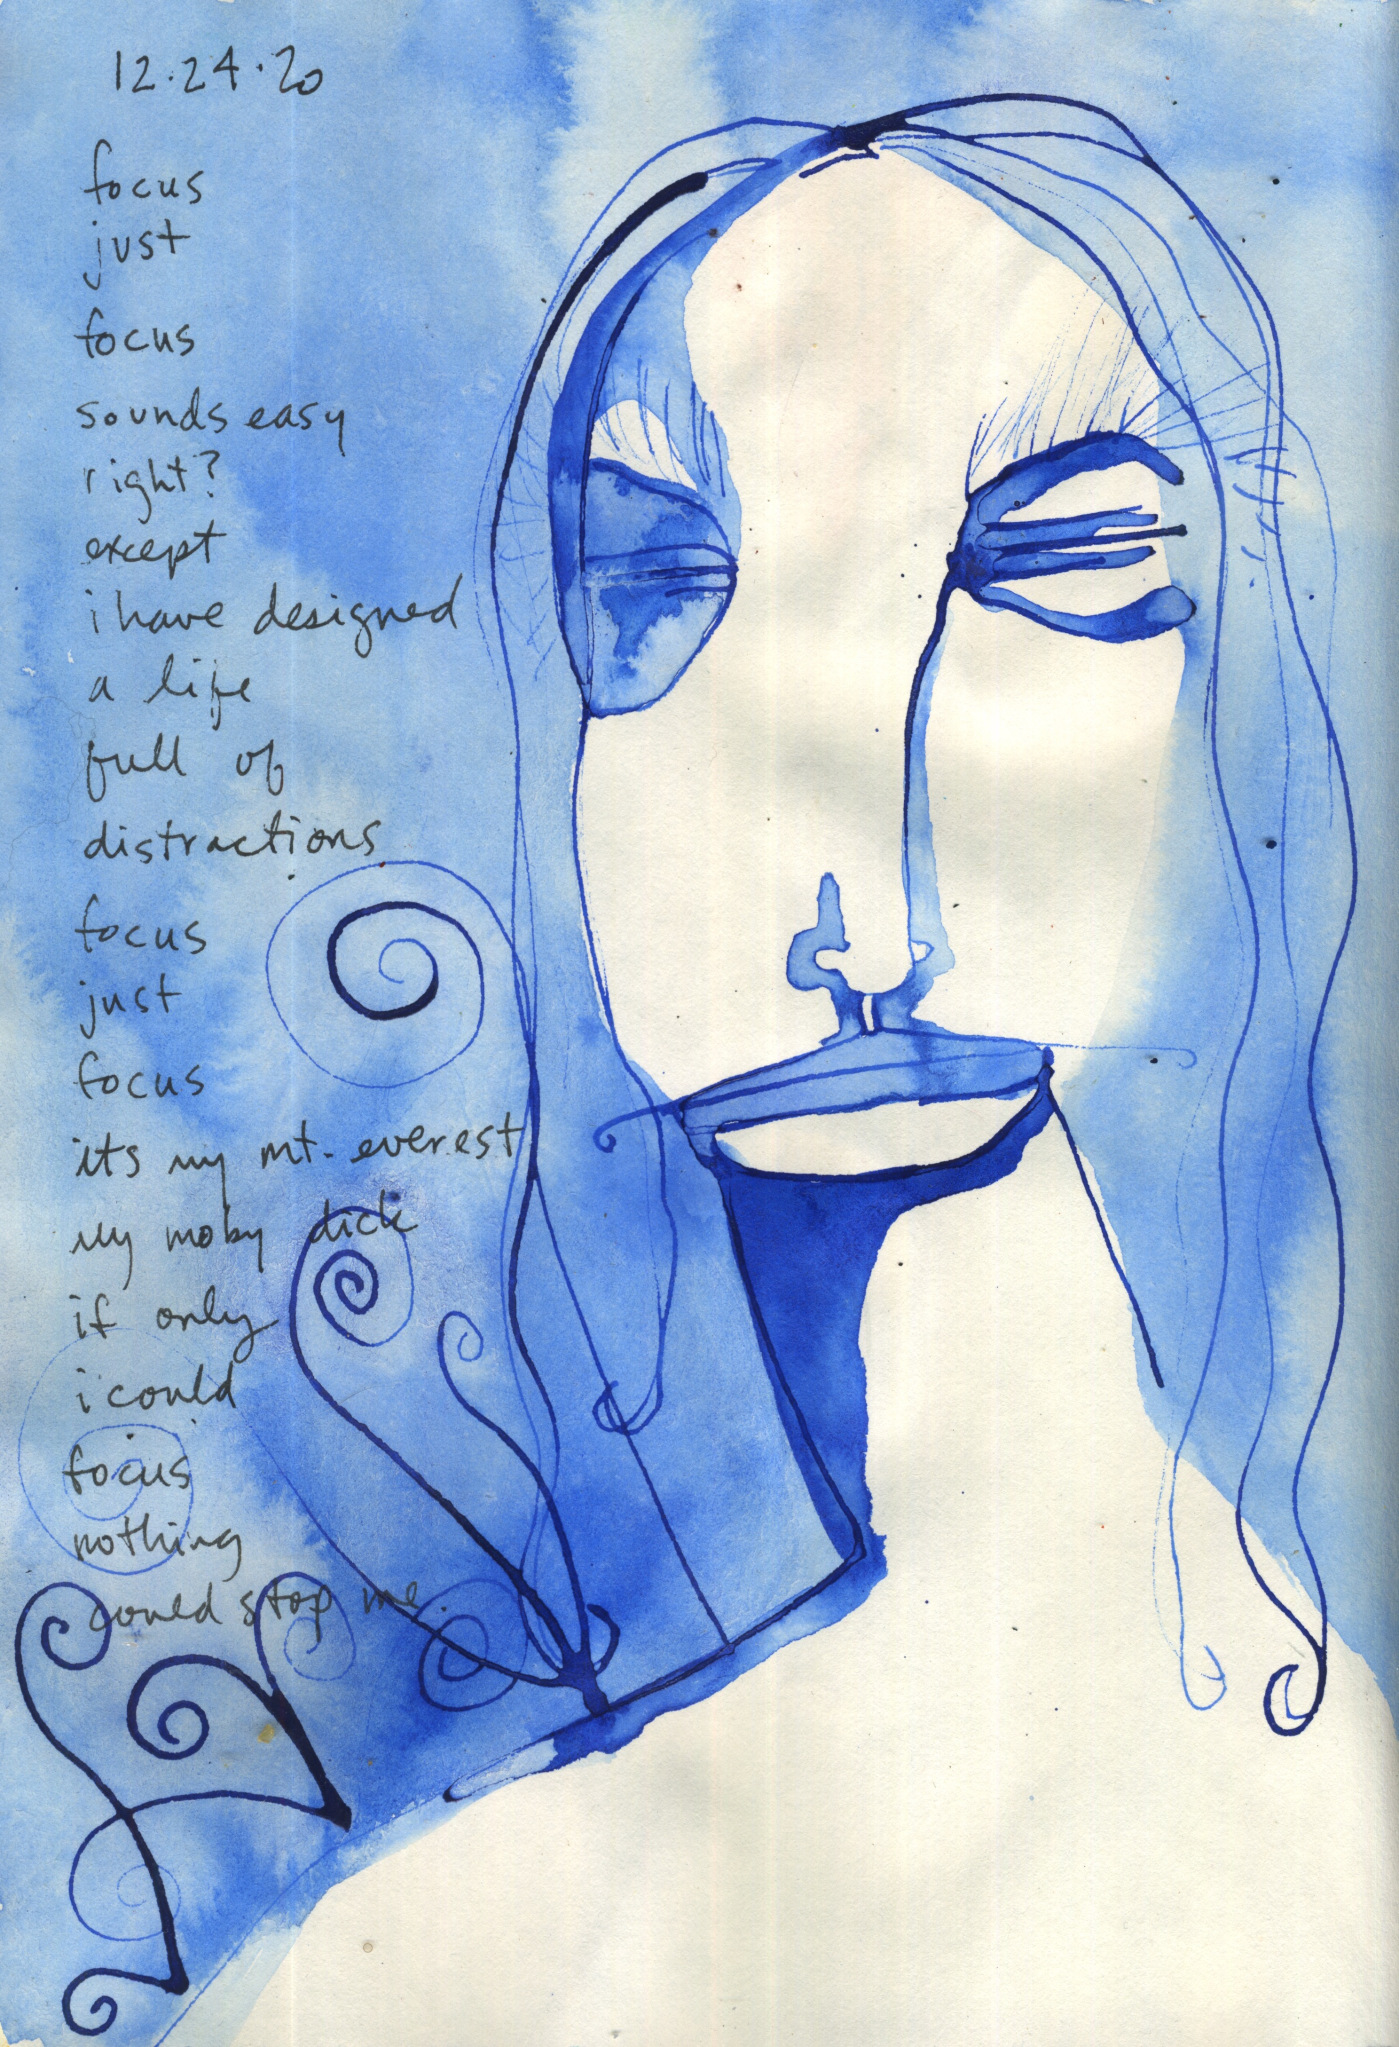 12.24.20
focus
just
focus
sounds easy
right?
except
i have designed
a life
full of
distractions
focus
just
focus
its my mt. everest
my moby dick
if only
i could
focus
nothing
could stop me.